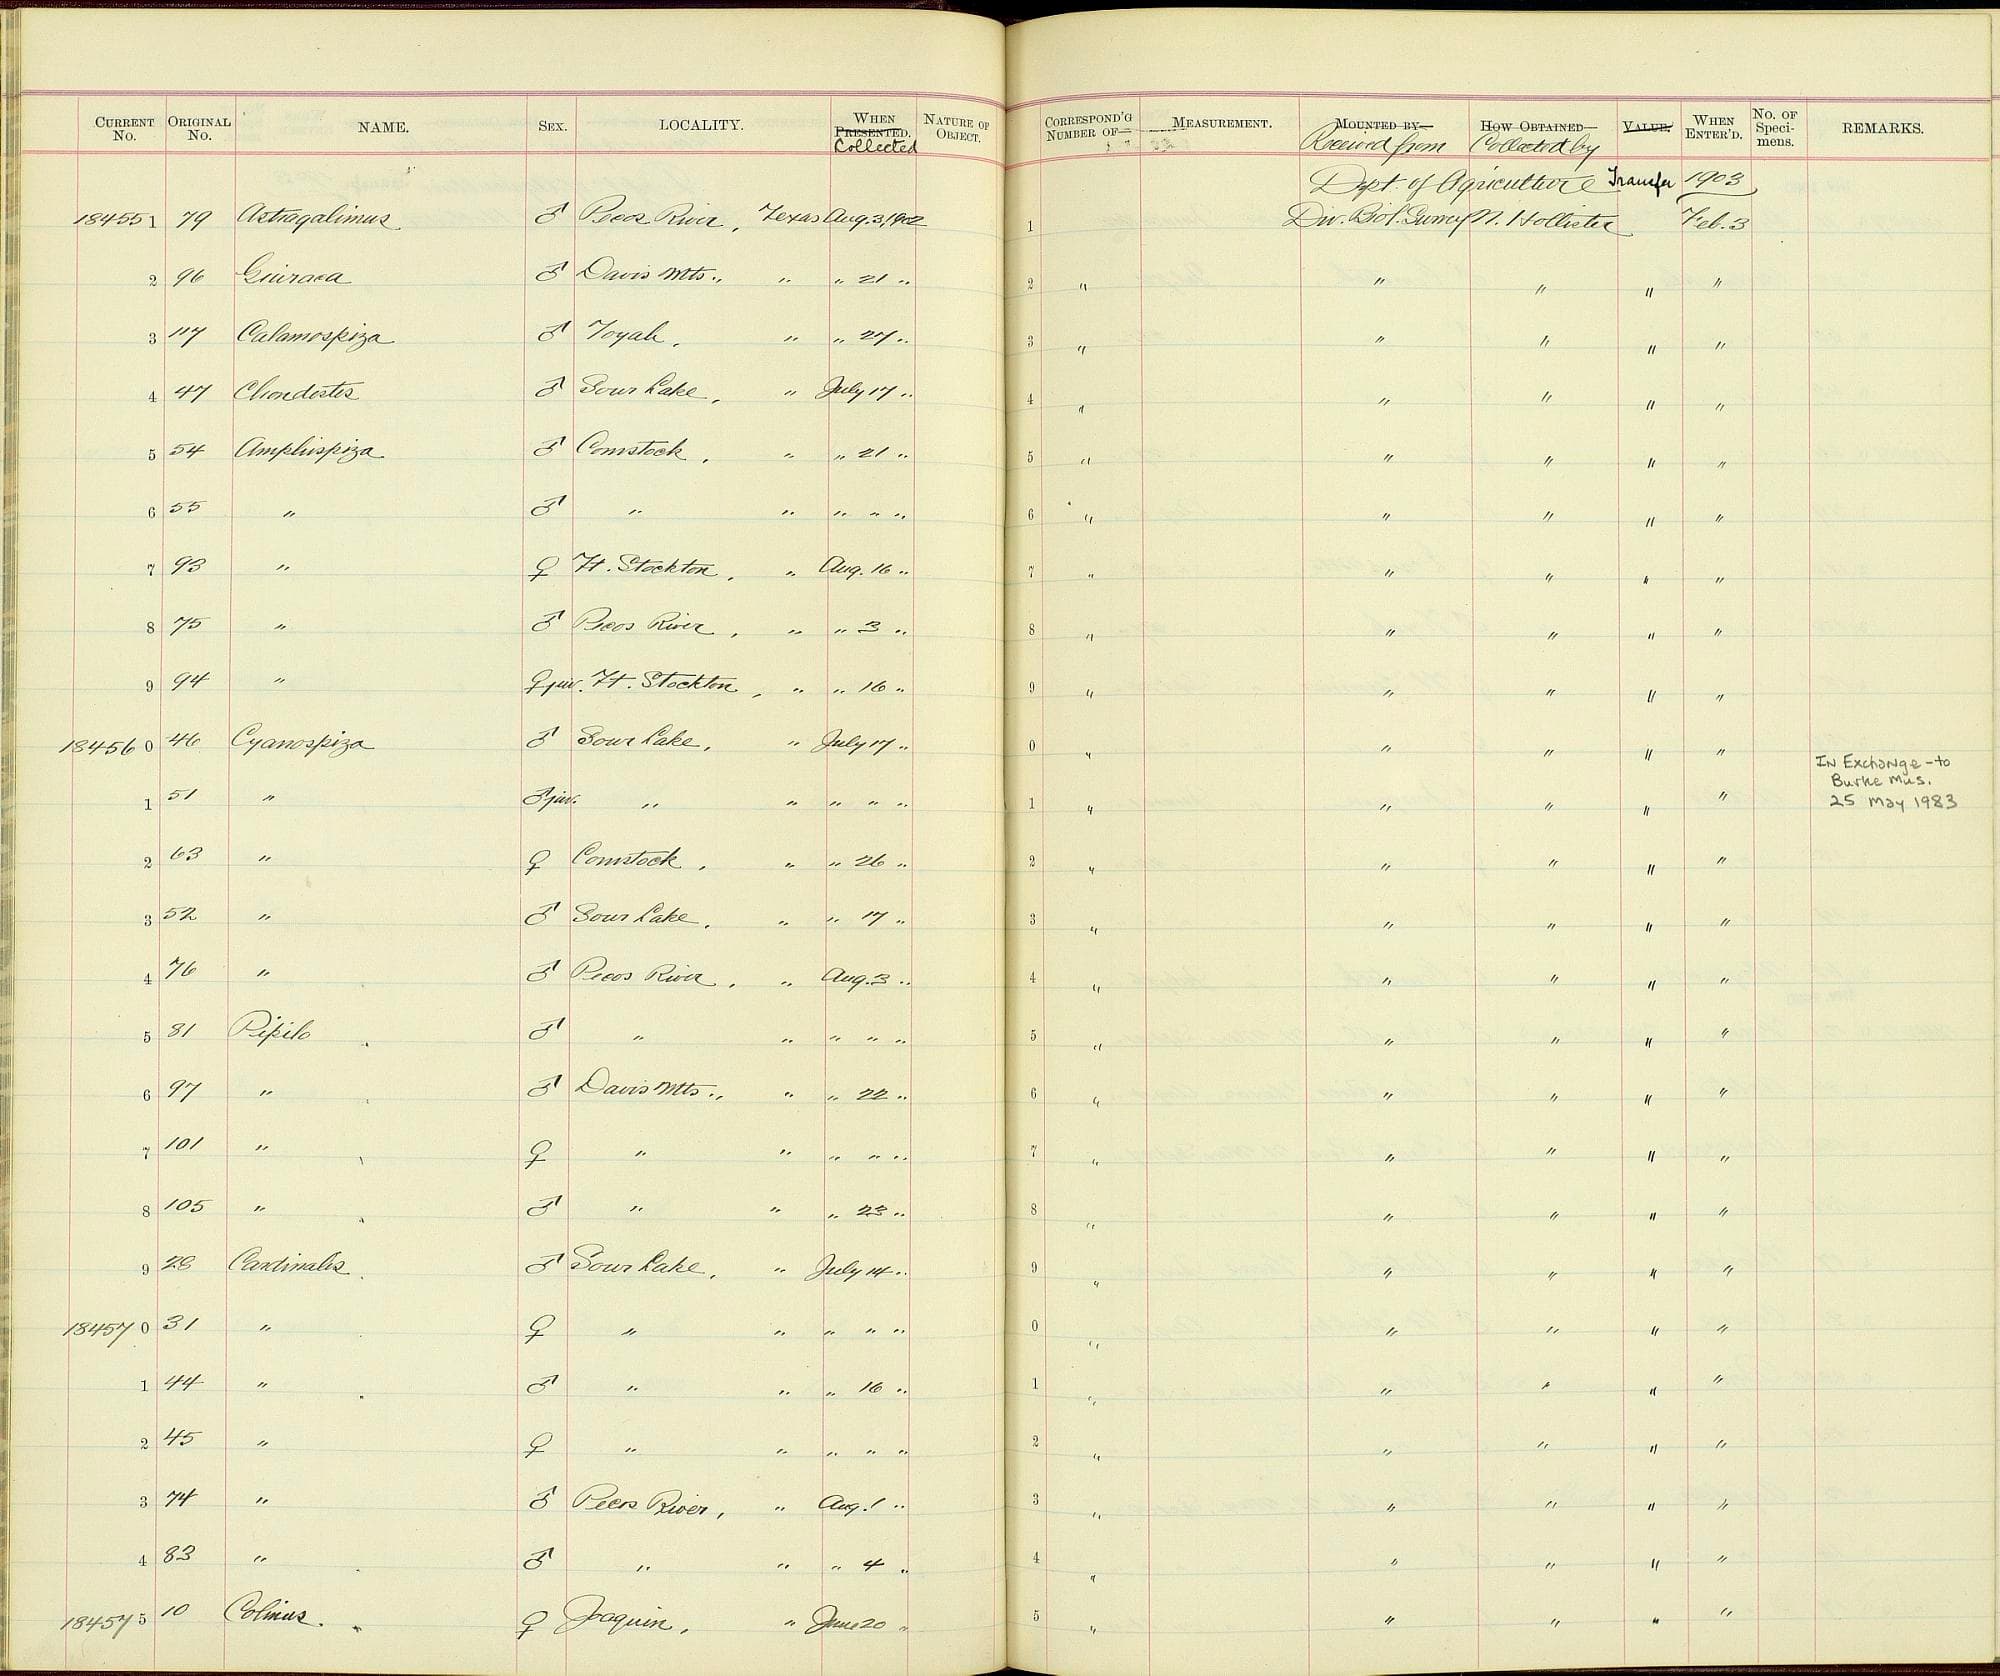 CURRENT No. ORIGINAL No. NAME. SEX. LOCALITY. WHEN PRESENTED. Collected NATURE OF OBJECT. CORRESPOND'G NUMBER OF MEASUREMENT. MOUNTED BY Received from HOW OBTAINED Collected by VALUE. WHEN ENTER'D. No. OF Speci-mens. REMARKS.
Dept. of Agriculture Transfer 1903
18455 1 79 Astragalinus ♂ Pecos River, Texas Aug. 3, 1902 1 Div. Biol. Survey N. Hollister Feb. 3
2 96 Guiraca ♂ Davis Mts., " " 21 " 2 " " " " "
3 117 Calamospiza ♂ Toyah, " " 27 " 3 " " " " "
4 47 Chondestes ♂ Sour Lake, " July 17 " 4 " " " " "
5 54 Amphispiza ♂ Comstock, " " 21 " 5 " " " " "
6 55 " ♂ " " " " " 6 " " " " "
7 93 " ♀ Ft. Stockton, " Aug. 16 " 7 " " " " "
8 75 " ♂ Pecos River, " " 3 " 8 " " " " "
9 94 " ♀ juv. Ft. Stockton, " " 16 " 9 " " " " "
18456 0 46 Cyanospiza ♂ Sour Lake, " July 17 " 0 " " " " "
1 51 " ♂ juv. " " " " " 1 " " " " " In Exchange - to
Burke Mus.
25 May 1983
2 63 " ♀ Comstock, " " 26 " 2 " " " " "
3 52 " ♂ Sour Lake, " " 17 " 3 " " " " "
4 76 " ♂ Pecos River, " Aug. 3 " 4 " " " " "
5 81 Pipilo ♂ " " " " " 5 " " " " "
6 97 " ♂ Davis Mts., " " 22 " 6 " " " " "
7 101 " ♀ " " " " " 7 " " " " "
8 105 " ♂ " " " 23 " 8 " " " " "
9 28 Cardinalis ♂ Sour Lake, " July 14 " 9 " " " " "
18457 0 31 " ♀ " " " " " 0 " " " " "
1 44 " ♂ " " " 16 " 1 " " " " "
2 45 " ♀ " " " " " 2 " " " " "
3 74 " ♂ Pecos River, " Aug. 1 " 3 " " " " "
4 83 " ♂ " " " 4 " 4 " " " " "
18457 5 10 Colinus. ♀ Joaquin, " June 20 " 5 " " " " "